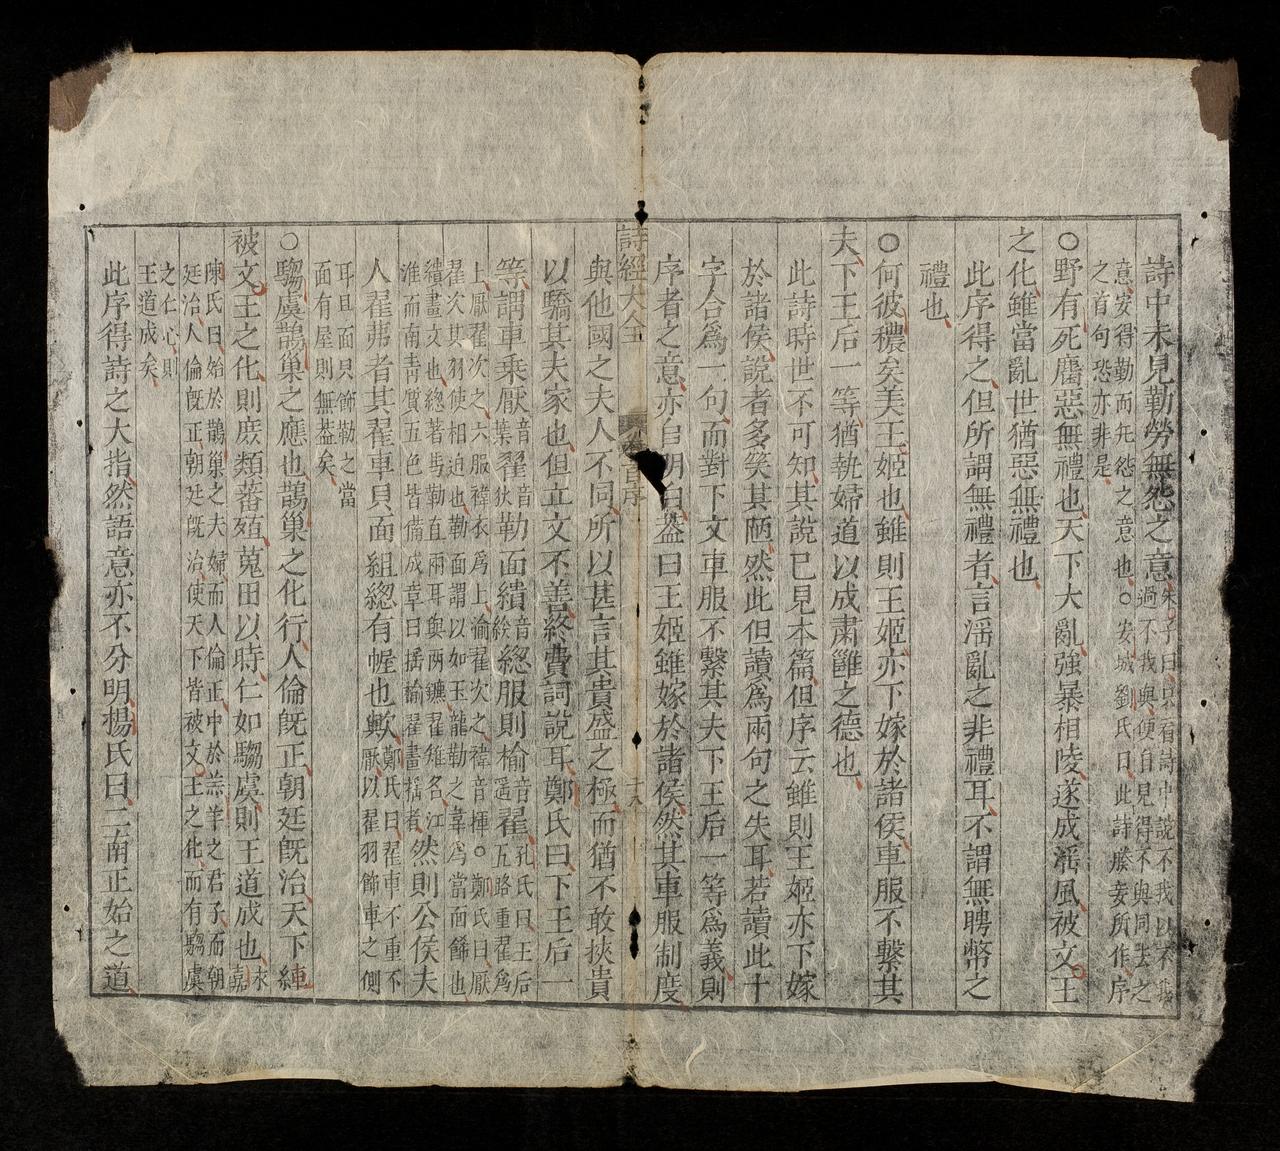 詩中未見勤勞無怨之意朱子曰只看詩中說不我以不我
過不我與便自見得不與同去之
意安得勤而无怨之意也○安城劉氏曰此詩媵妾所作序
之首句恐亦非是
○野有死麕惡無禮也天下大亂強暴相陵遂成淫風被文王
之化雖當亂世猶惡無禮也
此序得之但所謂無禮者言淫亂之非禮耳不謂無聘幣之
禮也
○何彼穠矣美王姬也雖則王姬亦下嫁於諸侯車服不繫其
夫下王后一等猶執婦道以成肅雝之德也
此詩時世不可知其說已見本篇但序云雖則王姬亦下嫁
於諸侯說者多笑其陋然此但讀為兩句之失耳若讀此十
字合為一句而對下文車服不繫其夫下王后一等為義則
序者之意亦自明白蓋曰王姬雖嫁於諸侯然其車服制度
詩經大全 序 十八
與他國之夫人不同所以甚言其貴盛之極而猶不敢挾貴
以驕其夫家也但立文不善終費詞說耳鄭氏曰下王后一
等謂車乘厭音葉翟音狄勒面繢音絵緫服則榆音遥翟孔氏曰王后
五路重翟為
上厭翟次之六服褘衣為上揄翟次之褘音揮○鄭氏曰厭
翟次其羽使相迫也勒面謂以如玉龍勒之韋為當面飾也
繢畫文也緫著馬勒直兩耳與兩鑣翟雉名江
淮而南青質五色皆備成章曰揺揄翟畫揺者然則公侯夫
人翟茀者其翟車貝面組緫有幄也歟鄭氏曰翟車不重不
厭以翟羽飾車之側
耳且面貝飾勒之當
面有屋則無蓋矣
○騶虞鵲巢之應也鵲巢之化行人倫旣正朝廷旣治天下純
被文王之化則庶類蕃殖蒐田以時仁如騶虞則王道成也永
嘉
陳氏曰始於鵲巢之夫婦而人倫正中於羔羊之君子而朝
廷治人倫旣正朝廷旣治使天下皆被文王之化而有騶虞
之仁心則
王道成矣
此序得詩之大指然語意亦不分明楊氏曰二南正始之道